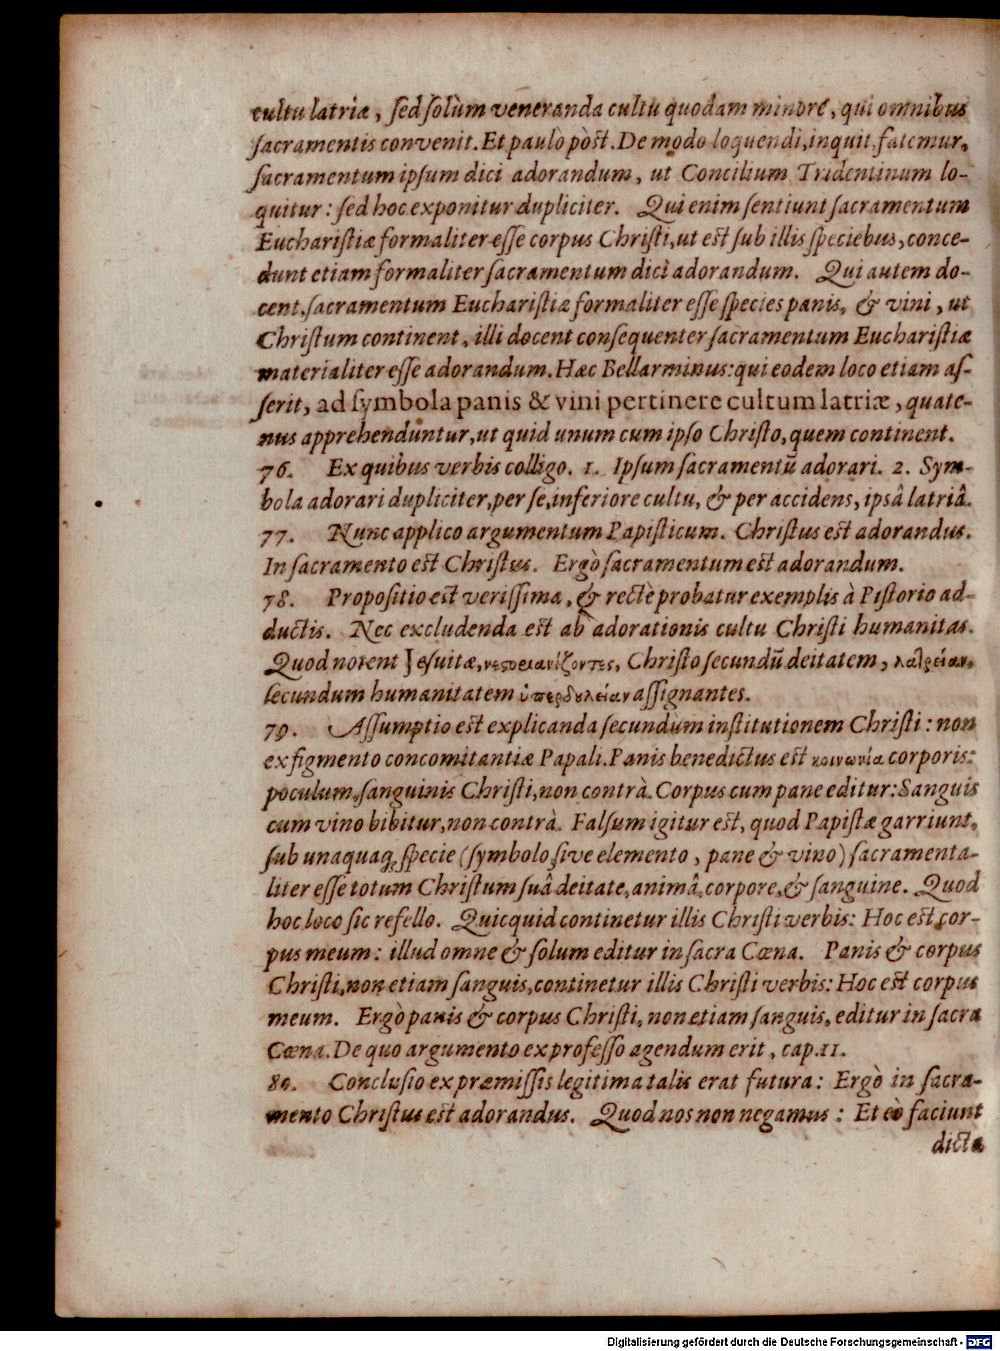 cultu latriæ, ſed ſolùm veneranda cultu quodam minore, qui omnibus
ſacramentis convenit. Et paulo pòst. De modo loquendi, inquit, fatemur,
ſacramentum ipſum dici adorandum, ut Concilium Tridentinum lo-
quitur: ſed hoc exponitur dupliciter. Qui enim ſentiunt ſacramentum
Euchariſtiæ formaliter eſſe corpus Chriſti, ut est ſub illis ſpeciebus, conce-
dunt etiam formaliter ſacramentum dici adorandum. Qui autem do-
cent, ſacramentum Euchariſtiæ formaliter eſſe ſpecies panis, & vini, ut
Chriſtum continent, illi docent conſequenter ſacramentum Euchariſtiæ
materialiter eſſe adorandum. Hæc Bellarminus: qui eodem loco etiam aſ-
ſerit, ad ſymbola panis & vini pertinere cultum latriæ, quate-
nus apprehenduntur, ut quid unum cum ipſo Chriſto, quem continent.
76. Ex quibus verbis colligo. 1. Ipſum ſacramentũ adorari. 2. Sym-
bola adorari dupliciter, per ſe, inferiore cultu, & per accidens, ipsâ latriâ.
77. Nunc applico argumentum Papiſticum. Chriſtus est adorandus.
In ſacramento est Chriſtus. Ergò ſacramentum est adorandum.
78. Propoſitio est veriſſima, & rectè probatur exemplis à Piſtorio ad-
ductis. Nec excludenda est ab adorationis cultu Chriſti humanitas.
Quod notent Jeſuitæ, νεστοριανίζοντες, Chriſto ſecundũ deitatem, λατρείαν,
ſecundum humanitatem ὑπερδουλείαν aſſignantes.
79. Aſſumptio est explicanda ſecundùm inſtitutionem Chriſti: non
ex figmento concomitantiæ Papali. Panis benedictus est κοινωνία corporis:
poculum, ſanguinis Chriſti, non contrà. Corpus cum pane editur: Sanguis
cum vino bibitur, non contrà. Falſum igitur est, quod Papiſtæ garriunt,
ſub unaquaq; ſpecie (ſymbolo ſive elemento, pane & vino) ſacramenta-
liter eſſe totum Chriſtum ſuâ deitate, animâ, corpore, & ſanguine. Quod
hoc loco ſic refello. Quicquid continetur illis Chriſti verbis: Hoc est cor-
pus meum: illud omne & ſolum editur in ſacra Cœna. Panis & corpus
Chriſti, non etiam ſanguis, continetur illis Chriſti verbis: Hoc est corpus
meum. Ergò panis & corpus Chriſti, non etiam ſanguis, editur in ſacra
Cœna. De quo argumento ex profeſſo agendum erit, cap. 11.
80. Concluſio ex præmiſſis legitima talis erat futura: Ergò in ſacra-
mento Chriſtus est adorandus. Quod nos non negamus: Et eò faciunt
dicta
Digitalisierung gefördert durch die Deutsche Forschungsgemeinschaft - DFG